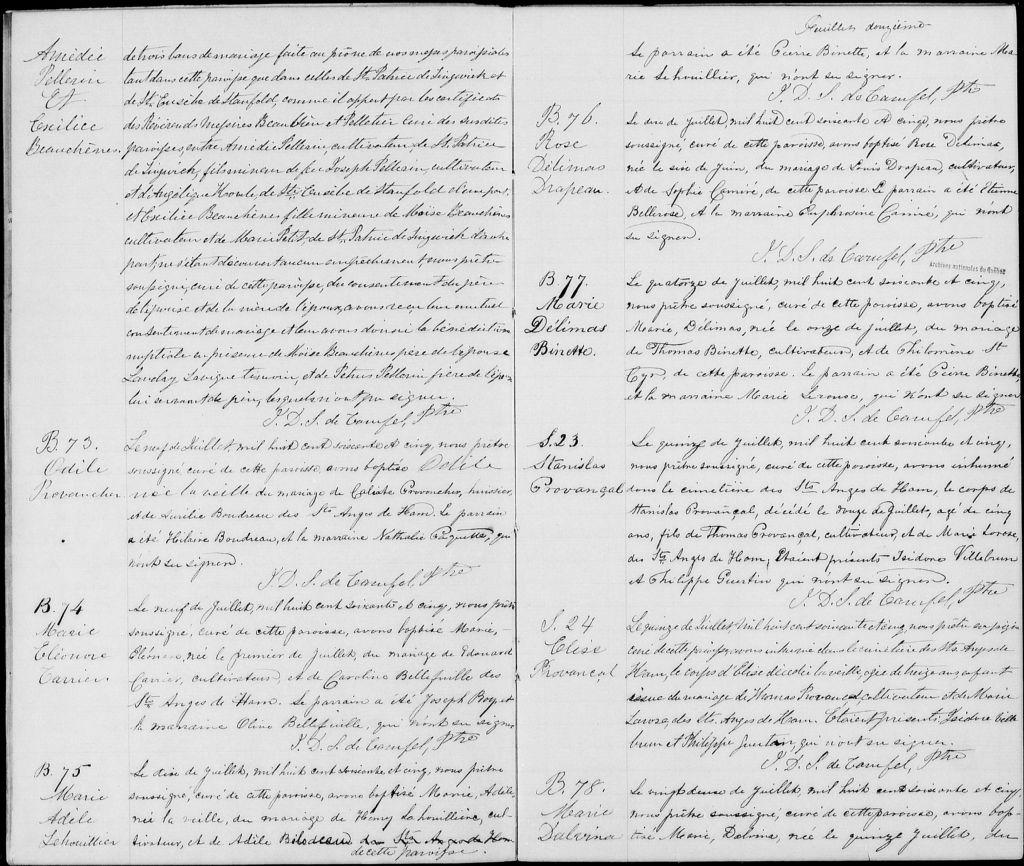 Amédée
Pellerin
Et
Exilice
Beauchêne.
de trois bans de mariage faite au prône de nos messes paroissiales
tant dans cette paroisse que dans celles de St. Patrice de Tingwick et
de St. Eusèbe de Stanfold, comme il appert par les certificats
des Révérends Messires Beaubien et Pelletier curé des susdites
paroisses, entre Amédée Pellerin, cultivateur de St. Patrice
de Tingwick, fils mineur de feu Joseph Pellerin, cultivateur
et d'Angélique de St. Eusèbe de Stanfold d'une part,
et Exilice Beauchêne fille mineure de Moïse Beauchêne
cultivateur et de Marie Petit, de St. Patrice de Tingwick d'autre
part; ne s'étant découvert aucun empêchement, nous prêtre
soussigné, curé de cette paroisse, du consentement du père
de l'épouse et de la mère de l'époux, avons reçu leur mutuel
consentement de mariage et leur avons donné la bénédiction
nuptiale en présence de Moïse Beauchêne père de l'épouse
Lavigne témoin, et de Pétrus Pellerin frère de l'époux
lui servant de père, lesquels n'ont pu signer.
J. D. S. de Camfel, Ptre
B. 73.
Odile
Provancher
Le neuf de Juillet, mil huit cent soixante et cinq, nous prêtre
soussigné curé de cette paroisse, avons baptisé Odile
née la veille du mariage de Calixte Provancher, huissier,
et de Aurélie Boudreau des Sts Anges de Ham. Le parrain
a été Hilaire Boudreau, et la marraine Nathalie Paquette, qui
n'ont su signer.
J. D. S. de Camfel, Ptre
B. 74
Marie
Eléonore
Carrier
Le neuf de Juillet, mil huit cent soixante et cinq, nous prêtre
soussigné, curé de cette paroisse, avons baptisé Marie,
Eléonore, née le premier de Juillet, du mariage de Edouard
Carrier, cultivateur, et de Caroline Bellefeuille des
Sts Anges de Ham. Le parrain a été Joseph Roy, et
la marraine Olive Bellefeuille, qui n'ont su signer
J. D. S. de Camfel, Ptre
B. 75
Marie
Adèle
Lehouillier
Le dix de Juillet, mil huit cent soixante et cinq, nous prêtre
soussigné, curé de cette paroisse, avons baptisé Marie, Adèle,
née la veille, du mariage de Henry Lehouillier, cul-
tivateur, et de Adèle Bilodeau des Sts Anges de Ham
de cette paroisse.
Feuillet douzième
Le parrain a été Pierre Binette, et la marraine Ma-
rie Lehouillier, qui n'ont su signer.
J. D. S. de Camfel, Ptre
B. 76.
Rose
Délimas
Drapeau.
Le dix de Juillet, mil huit cent soixante et cinq, nous prêtre
soussigné, curé de cette paroisse, avons baptisé Rose Délimas,
née le six de Juin, du mariage de Louis Drapeau, cultivateur,
et de Sophie Camiré, de cette paroisse. Le parrain a été Etienne
Bellerose, et la marraine Euphrosine Camiré, qui n'ont
su signer.
J. D. S. de Camfel, Ptre
Archives nationales du Québec
B. 77.
Marie
Délimas
Binette.
Le quatorze de Juillet, mil huit cent soixante et cinq,
nous prêtre soussigné, curé de cette paroisse, avons baptisé
Marie, Délimas, née le onze de juillet, du mariage
de Thomas Binette, cultivateur, et de Philomène St
Cyr, de cette paroisse. Le parrain a été Pierre Binette,
et la marraine Marie Lerouse, qui n'ont su signer
J. D. S. de Camfel, Ptre
S. 23.
Stanislas
Provançal
Le quinze de Juillet, mil huit cent soixante et cinq,
nous prêtre soussigné, curé de cette paroisse, avons inhumé
dans le cimetière des Sts Anges de Ham, le corps de
Stanislas Provançal, décédé le douze de Juillet, agé de cinq
ans, fils de Thomas Provançal, cultivateur, et de Marie Larose,
des Sts Anges de Ham; Etaient présents Isidore Villebrun
et Philippe Guertin qui n'ont su signer.
J. D. S. de Camfel, Ptre
S. 24
Elise
Provançal
Le quinze de Juillet, mil huit cent soixante et cinq, nous prêtre soussigné
curé de cette paroisse, avons inhumé dans le cimetière des Sts. Anges de
Ham, le corps d'Elise décédée la veille, agée de treize ans, enfant
issue du mariage de Thomas Provençal, cultivateur et de Marie
Larose, des Sts. Anges de Ham. Etaient présents, Isidore Ville
brun et Philippe Guertin, qui n'ont su signer.
J. D. S. de Camfel, Ptre
B. 78.
Marie
Dalvina
Le vingt deux de Juillet, mil huit cent soixante et cinq
nous prêtre soussigné, curé de cette paroisse, avons bap-
tisé Marie, Dalvina, née le quinze Juillet, du